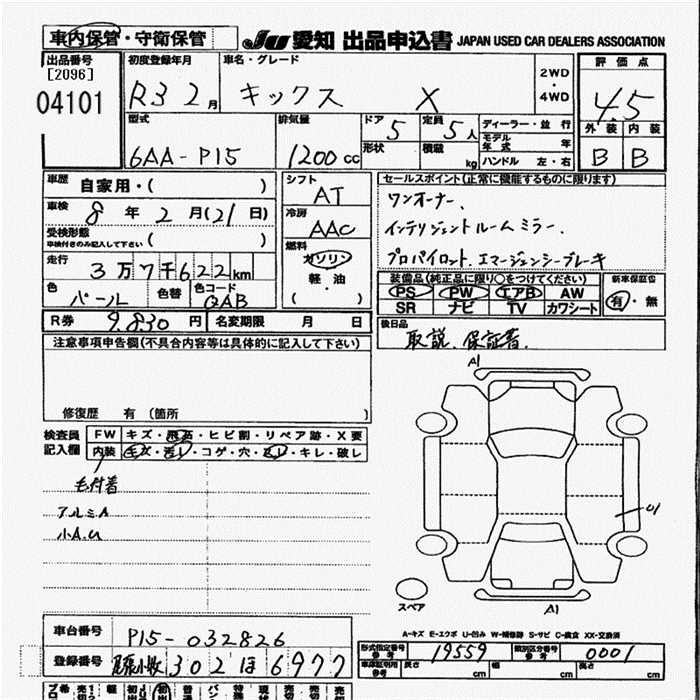 車内保管・守衛保管 JU 愛知 出品申込書 JAPAN USED CAR DEALERS ASSOCIATION
出品番号 [2096] 04101
初度登録年月 R3 2月
車名・グレード キックス X
2WD・4WD
評価点 4.5
外装 内装
B B
型式 6AA-P15
排気量 1200cc
ドア 5 定員 5人
形状 積載 kg
ディーラー・並行
モデル年式 年
ハンドル 左・右
車歴 自家用・( )
車検 8年2月(21日)
受検形態 車検付きのみ記入して下さい ( )
走行 3万7千622km
色 パール 色替 色コード QAB
シフト AT
冷房 AAC
燃料 ガソリン 軽・油
( )
セールスポイント(正常に機能するものに限ります)
ワンオーナー、
インテリジェントルームミラー、
プロパイロット、エマージェンシーブレーキ
装備品(純正品に限り○をつけてください)
PS PW エアB AW
SR ナビ TV カワシート
新車保証書 有・無
後日品 取説、保証書、
R券 9,830円 名変期限 月 日
注意事項申告欄(不具合内容等は具体的に記入して下さい)
修復歴 有 (箇所 )
検査員記入欄
FW キズ・飛石・ヒビ割・リペア跡・X要
内装 キズ・汚レ・コゲ・穴・スレ・キレ・破レ
毛付着
アルミA
小A.U
A1
U1
A1
スペア
A-キズ E-エクボ U-凹み W-補修跡 S-サビ C-腐食 XX-交換済
車台番号 P15-032826
登録番号 尾張小牧 302 ほ 6977
形式指定番号 参考 19559
類別区分番号 参考 0001
車庫証明用 参考 長さ cm 幅 cm 高さ cm